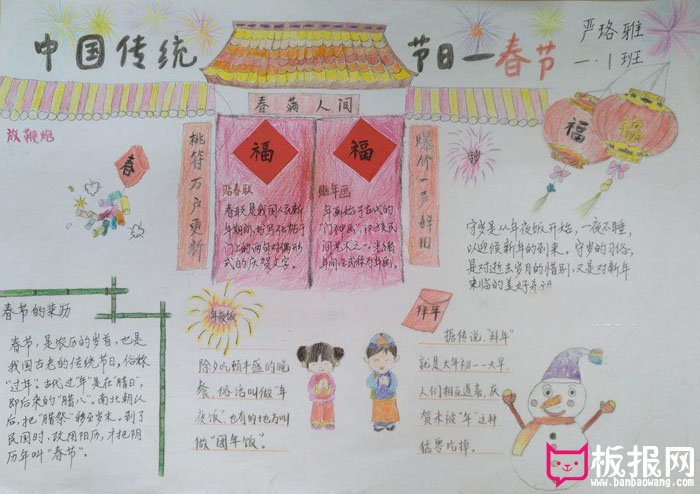 中国传统
节日一春节
严珞雅
一.1班
春满人间
放鞭炮
春
桃符万户更新
爆竹一声辞旧
福
福
福
福
贴春联
春联是我国人民新
年期间,书写张贴于
门上的两句对偶形
式的庆贺文字。
贴年画
年画始于古代的
"门神画",
民间艺术之一,
守岁是从年夜饭开始,一夜不睡,
以迎候新年的到来。守岁的习俗,
是对逝去岁月的惜别,又是对新年
来临的美好
春节的来历
春节,是农历的岁首,也是
我国古老的传统节日。俗称
"过年"。古代过"年"是在"腊日",
即后来的"腊八"。南北朝以
后,把"腊祭"移至岁末。到了
民国时,改用阳历,才把阴
历年叫"春节"。
年夜饭
除夕吃顿丰盛的晚
餐,俗话叫做"年
夜饭",也有的地方叫
做"团年饭"。
拜年
据传说,"拜年"
就是大年初一一大早,
人们相互道喜,庆
贺未被"年"这种
猛兽吃掉。
板报网
www.banbaowang.com